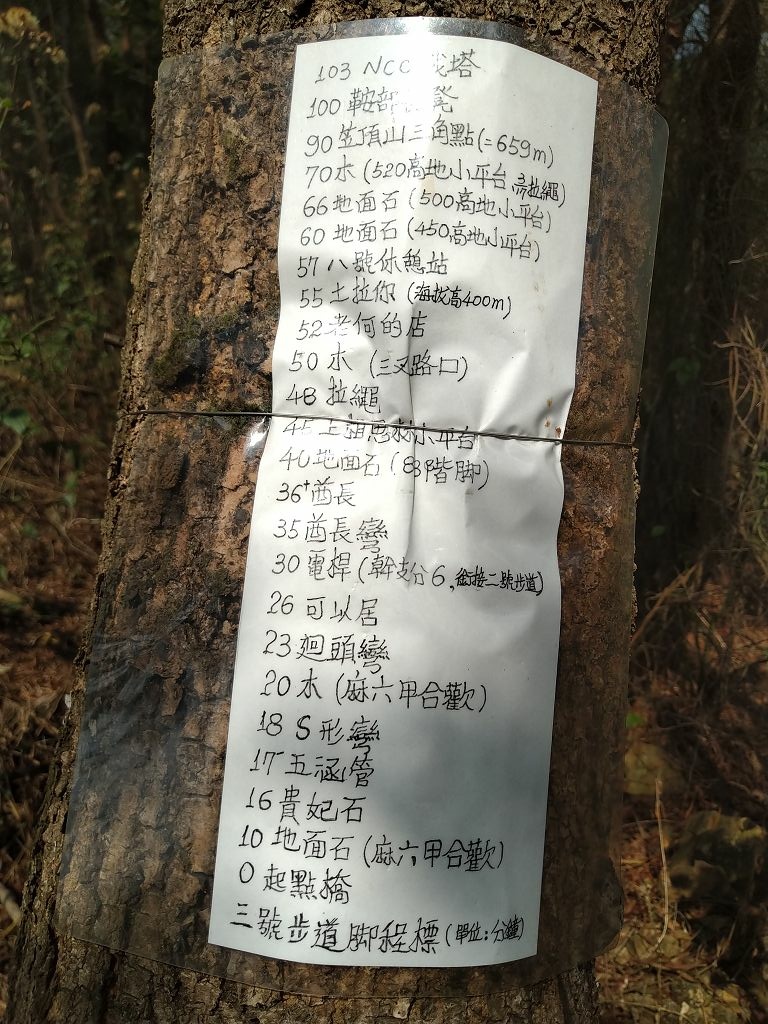 103 NCC 塔
100 鞍部 凳
90 笠頂山三角點(=659m)
70 木 (520高地小平台,多拉繩)
66 地面石 (500高地小平台)
60 地面石 (450高地小平台)
57 八號休憩站
55 土拉你 (海拔高400m)
52 老何的店
50 木 (三叉路口)
48 拉繩
45 上相思林小平台
40 地面石 (83階脚)
36⁺酋長
35 酋長彎
30 電桿 (幹支分6,銜接二號步道)
26 可以居
23 迴頭彎
20 木 (麻六甲合歡)
18 S 形彎
17 五涵管
16 貴妃石
10 地面石 (麻六甲合歡)
0 起點橋
三號步道脚程標 (單位:分鐘)